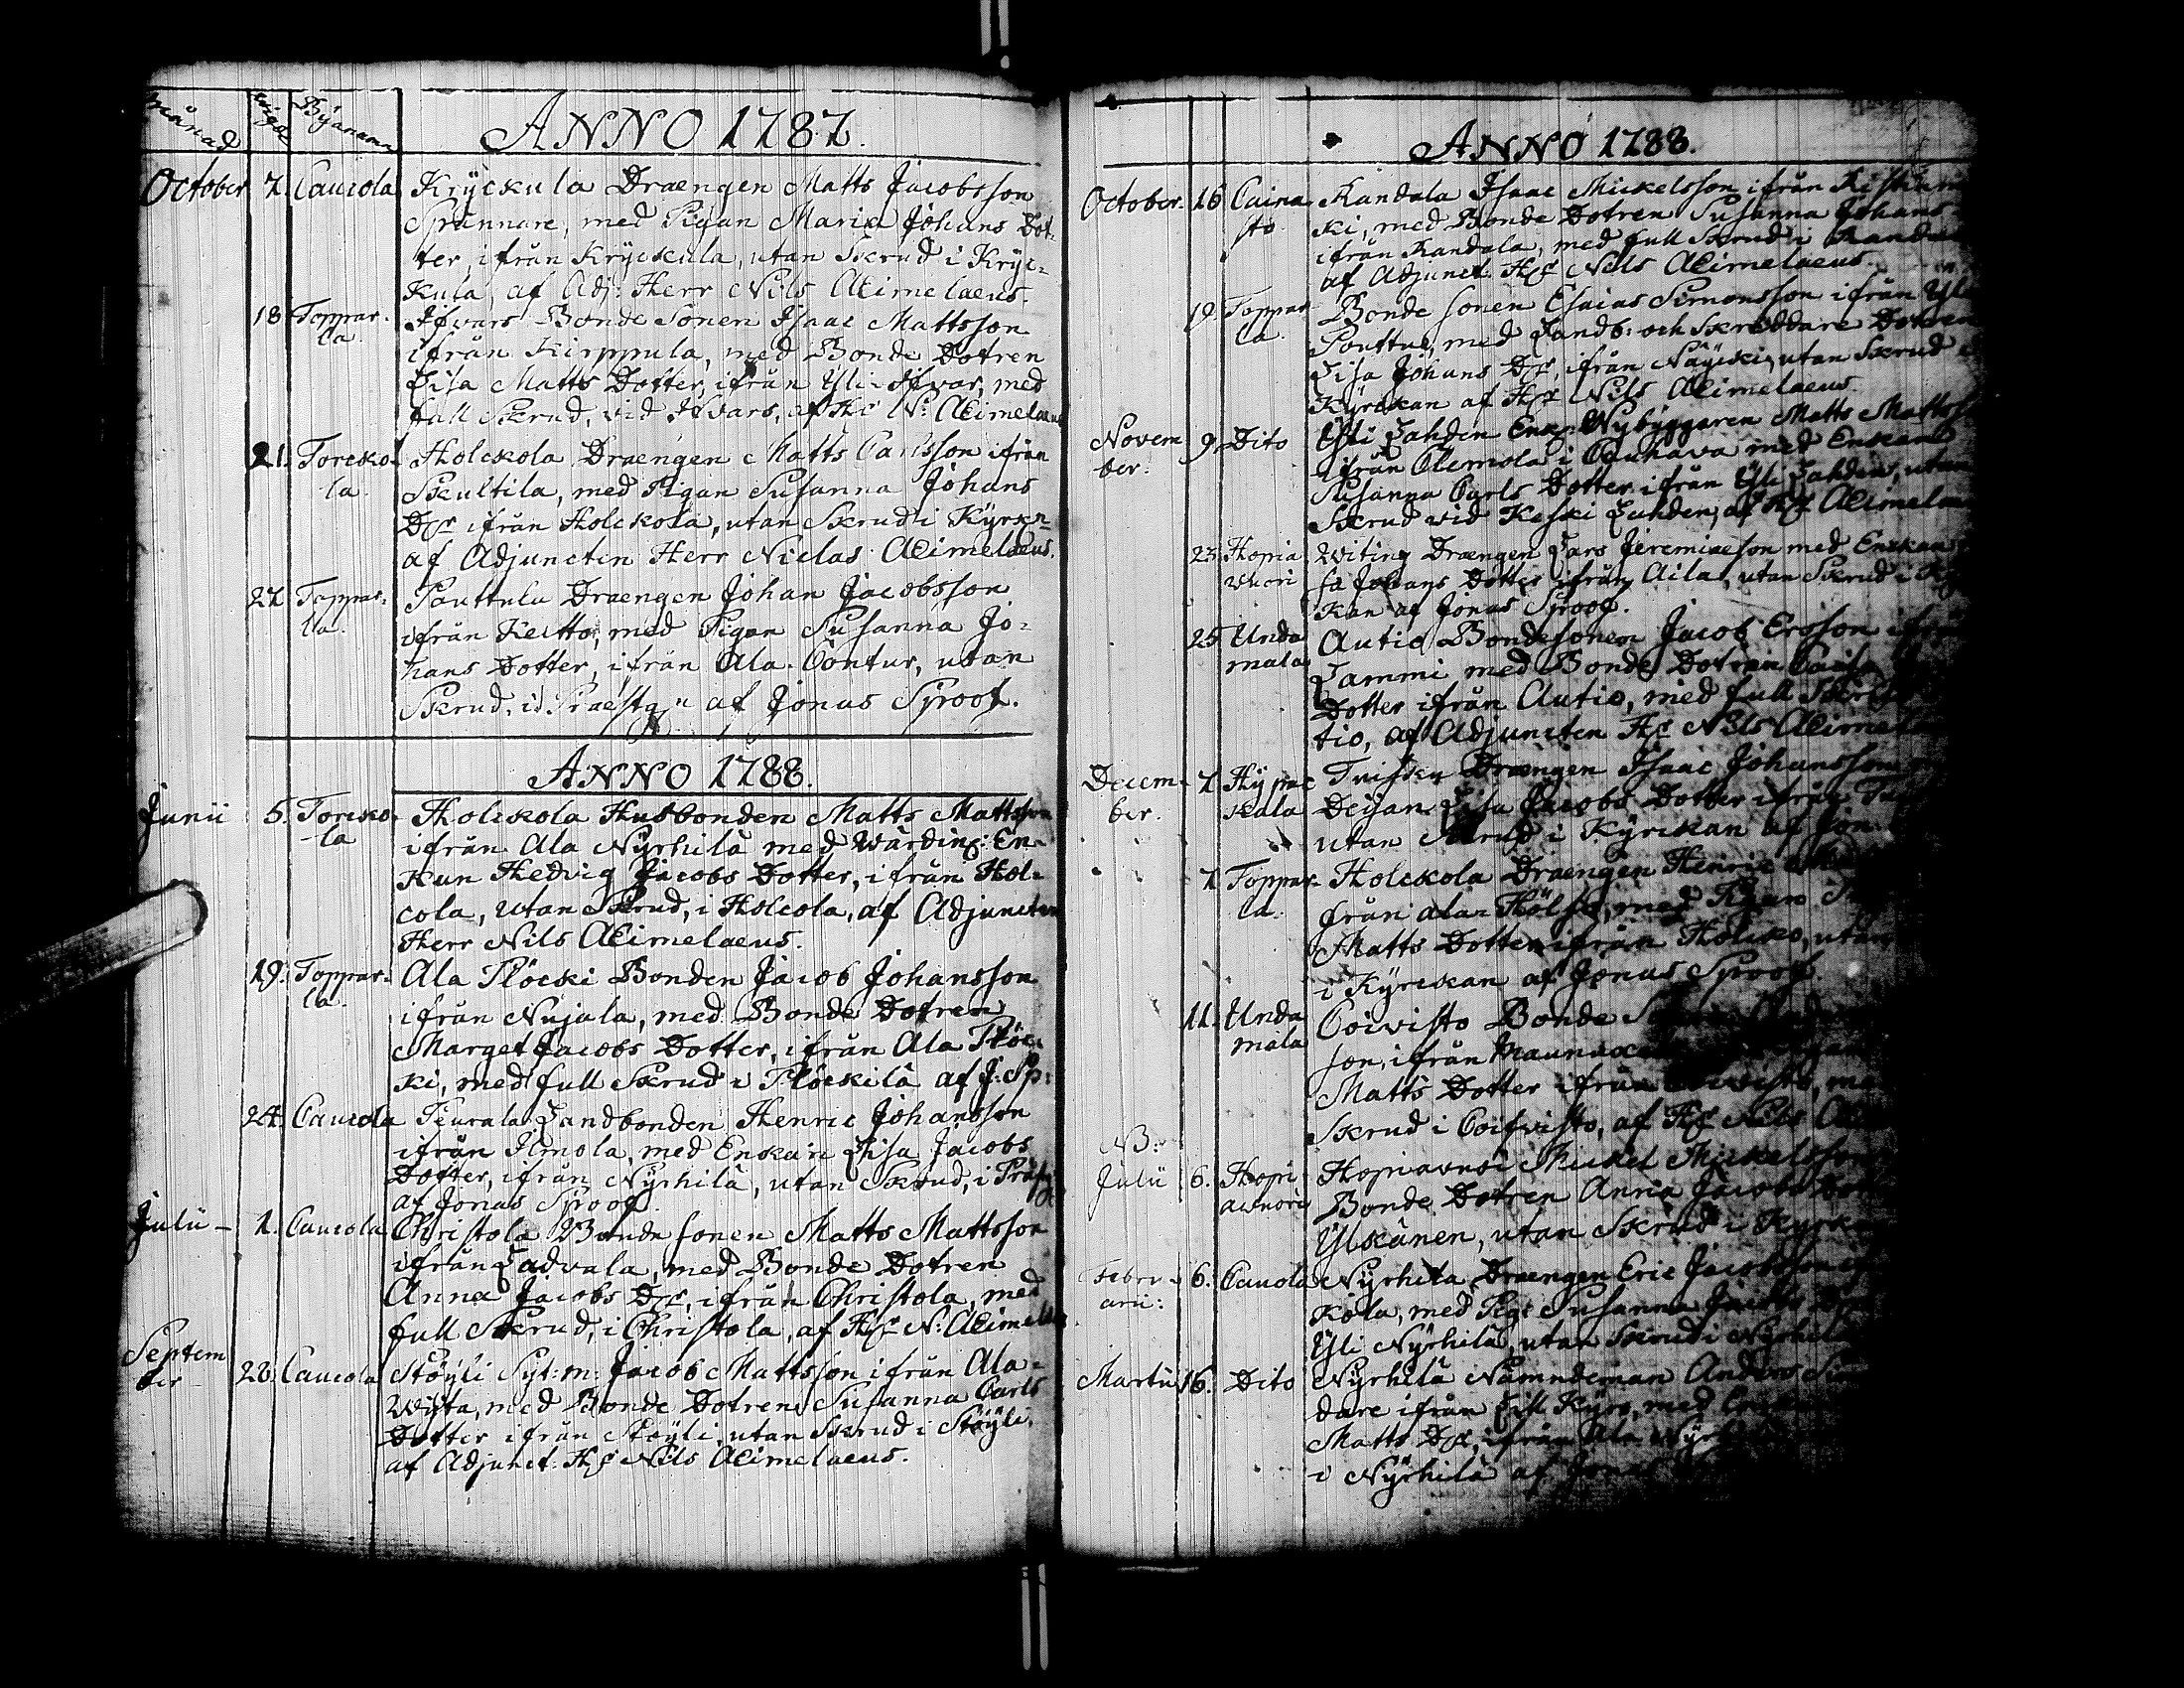 Månad Vigde Byanamn ANNO 1787.
October 7. Caucola Kryckula Draengen Matts Jacobsson
Spånnare, med Pigan Maria Johans Dot-
ter, ifrån Kryckula, utan Skrud i Kryc-
kula, af Adj: Herr Nils Aeimelaeus.
18 Toppar- Ifvars Bonde Sonen Isaac Mattsson
la. ifrån Kirppula, med Bonde Dotren
Lisa Matts Dotter, ifrån Yli-Ifvar, med
full Skrud, vid Ifvars, af Hr N: Aeimelaeus
21. Torcko- Holckola Draengen Matts Carlsson ifrån
la. Skultila, med Pigan Susanna Johans
Dr ifrån Holckola, utan Skrud i Kyrkn
af Adjuncten Herr Niclas Aeimelaeus.
27 Toppar- Pouttulu Draengen Johan Jacobsson
la. ifrån Keltto, med Pigan Susanna Jo-
hans Dotter, ifrån Ala-Contur, utan
Skrud, i Praestgn af Jonas Sproof.
ANNO 1788.
Junii 5. Torcko- Holckola Husbonden Matts Mattsson
la ifrån Ala Nyrhilä med Wärdinn: En-
kan Hedvig Jacobs Dotter, ifrån Hol-
cola, utan Skrud, i Holcola, af Adjuncten
Herr Nils Aeimelaeus.
19. Toppar- Ala Plöcki Bonden Jacob Johansson
la. ifrån Nujala, med Bonde Dotren
Marget Jacobs Dotter, ifrån Ala Plöc-
ki, med full Skrud i Plöckilä af J: Sp:
24. Caucola Peurala Landbonden Henric Johansson
ifrån Ilmola, med Enkan Lisa Jacobs
Dotter, ifrån Nyrhilä, utan Skrud, i Präst
af Jonas Sproof
Julii - 1. Caucola Christola Bonde sonen Matts Mattsson
ifrån Ladvala, med Bonde Dotren
Anna Jacobs Dr, ifrån Christola, med
full Skrud, i Christola, af Hr N: Aeimelae
Septem
ber 28. Caucola Stöyli Syt:m: Jacob Mattsson ifrån Ala-
Wijta, med Bonde Dotren Susanna Carls
Dotter ifrån Stöyli, utan Skrud i Stöyli,
af Adjunct: Hr Nils Aeimelaeus.
ANNO 1788.
October. 16 Caina Kandala Isaac Mickelsson ifrån
sto. ki, med Bonde Dotren Susanna Johans-
ifrån Kandala, med full Skrud i Kandala
af Adjunct: Hr Nils Aeimelaeus.
19. Toppar Bonde sonen Esaias Simonsson ifrån Yli
la. Pouttu, med Landb: och Skräddare Dotren
Lisa Johans Dr, ifrån Näycki, utan Skrud i
Kyrckan af Hr Nils Aeimelaeus.
Novem 9. Dito Yli Lahden Enk: Nybyggaren Matts Mattss
ber. ifrån Clemola i Cauhava med Enckan
Susanna Carls Dotter ifrån Yli Lahden, utan
Skrud vid Keski Lahden, af Hr Aeimelae
23. Hopia Witing Draengen Lars Jeremiaeson med Enckan
wuori sa Johans Dotter ifrån Aila, utan Skrud i Kyr
kan af Jonas Sproof.
25 Unda Autio Bondesonen Jacob Ersson ifrån
mala Lammi med Bonde Dotren Caisa
Dotter ifrån Autio, med full Skrud
tio, af Adjuncten Hr Nils Aeimelae
Decem- 7. Hyrnc Draengen Isaac Johansson
ber. kala Deijan Lisa Jacobs Dotter ifrån
utan Skrud i Kyrckan af Jon
7 Toppar- Holckola Draengen Henric
la. från Ala- med Pigan
Matts Dotter ifrån Holcko, utan
i Kyrckan af Jonas Sproof.
11. Unda Coivisto Bonde
mala son, ifrån
Matts Dotter ifrån Coivisto, me
Skrud i Coifvisto, af Hr Nils
NB:
Julii 6. Hopi- Hopiavuori Mickel Mickelsson
avuori Bonde Dotren Anna Jacobs Dot
Ylckänen, utan Skrud i Kyrka
Febru- 6. Caucola Nyrhilä Draengen Eric Jacobsson if
arii: kola, med Pig: Susanna Jacobs
Yli Nyrhilä, utan Skrud i Nyrhilä
Martii 16. Dito Nyrhilä Nämndeman Anders
dare ifrån Lill Kyro, med
Matts Dr, ifrån Ala Nyrh
i Nyrhilä af Jonas